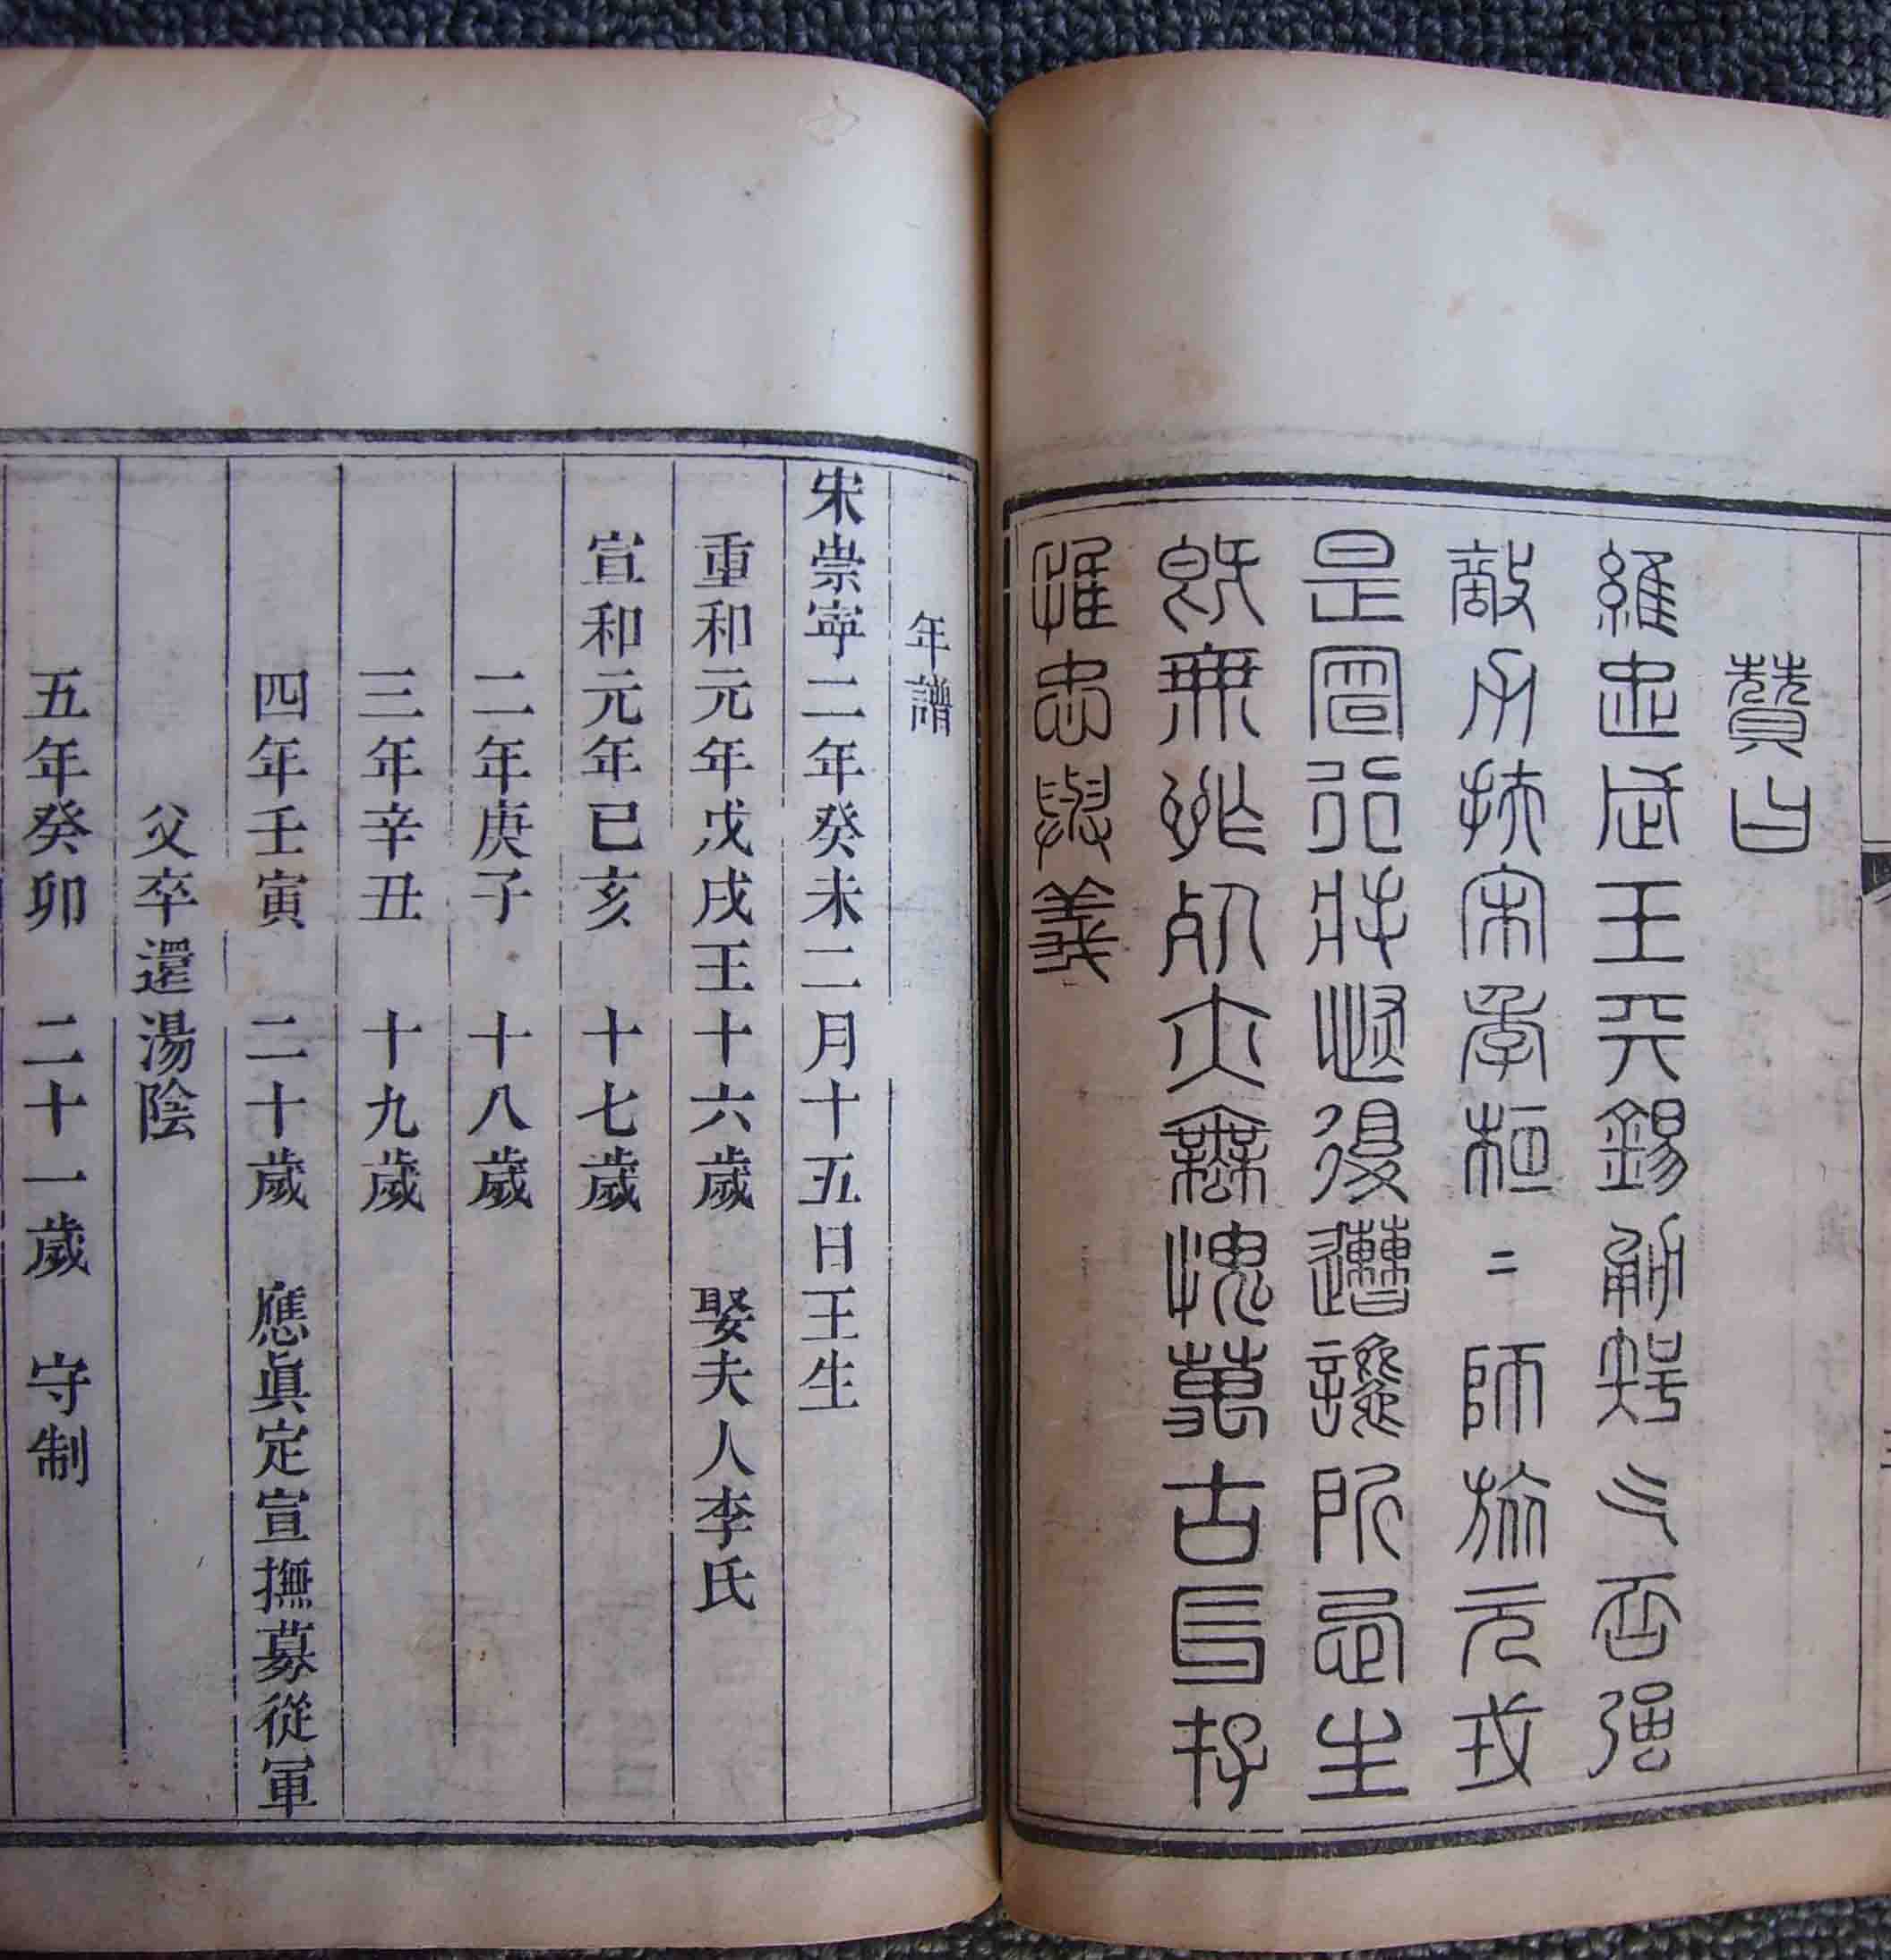 贊曰
維忠武王天錫勇智气吞強
敵力扶宋季桓〻師旅元戎
是圖行將恢復遭讒所忌生
既無逃死亦無愧萬古長存
惟忠與義
年譜
宋崇寧二年癸未二月十五日王生
重和元年戊戌王十六歲 娶夫人李氏
宣和元年已亥 十七歲
二年庚子 十八歲
三年辛丑 十九歲
四年壬寅 二十歲 應眞定宣撫募從軍
父卒還湯陰
五年癸卯 二十一歲 守制